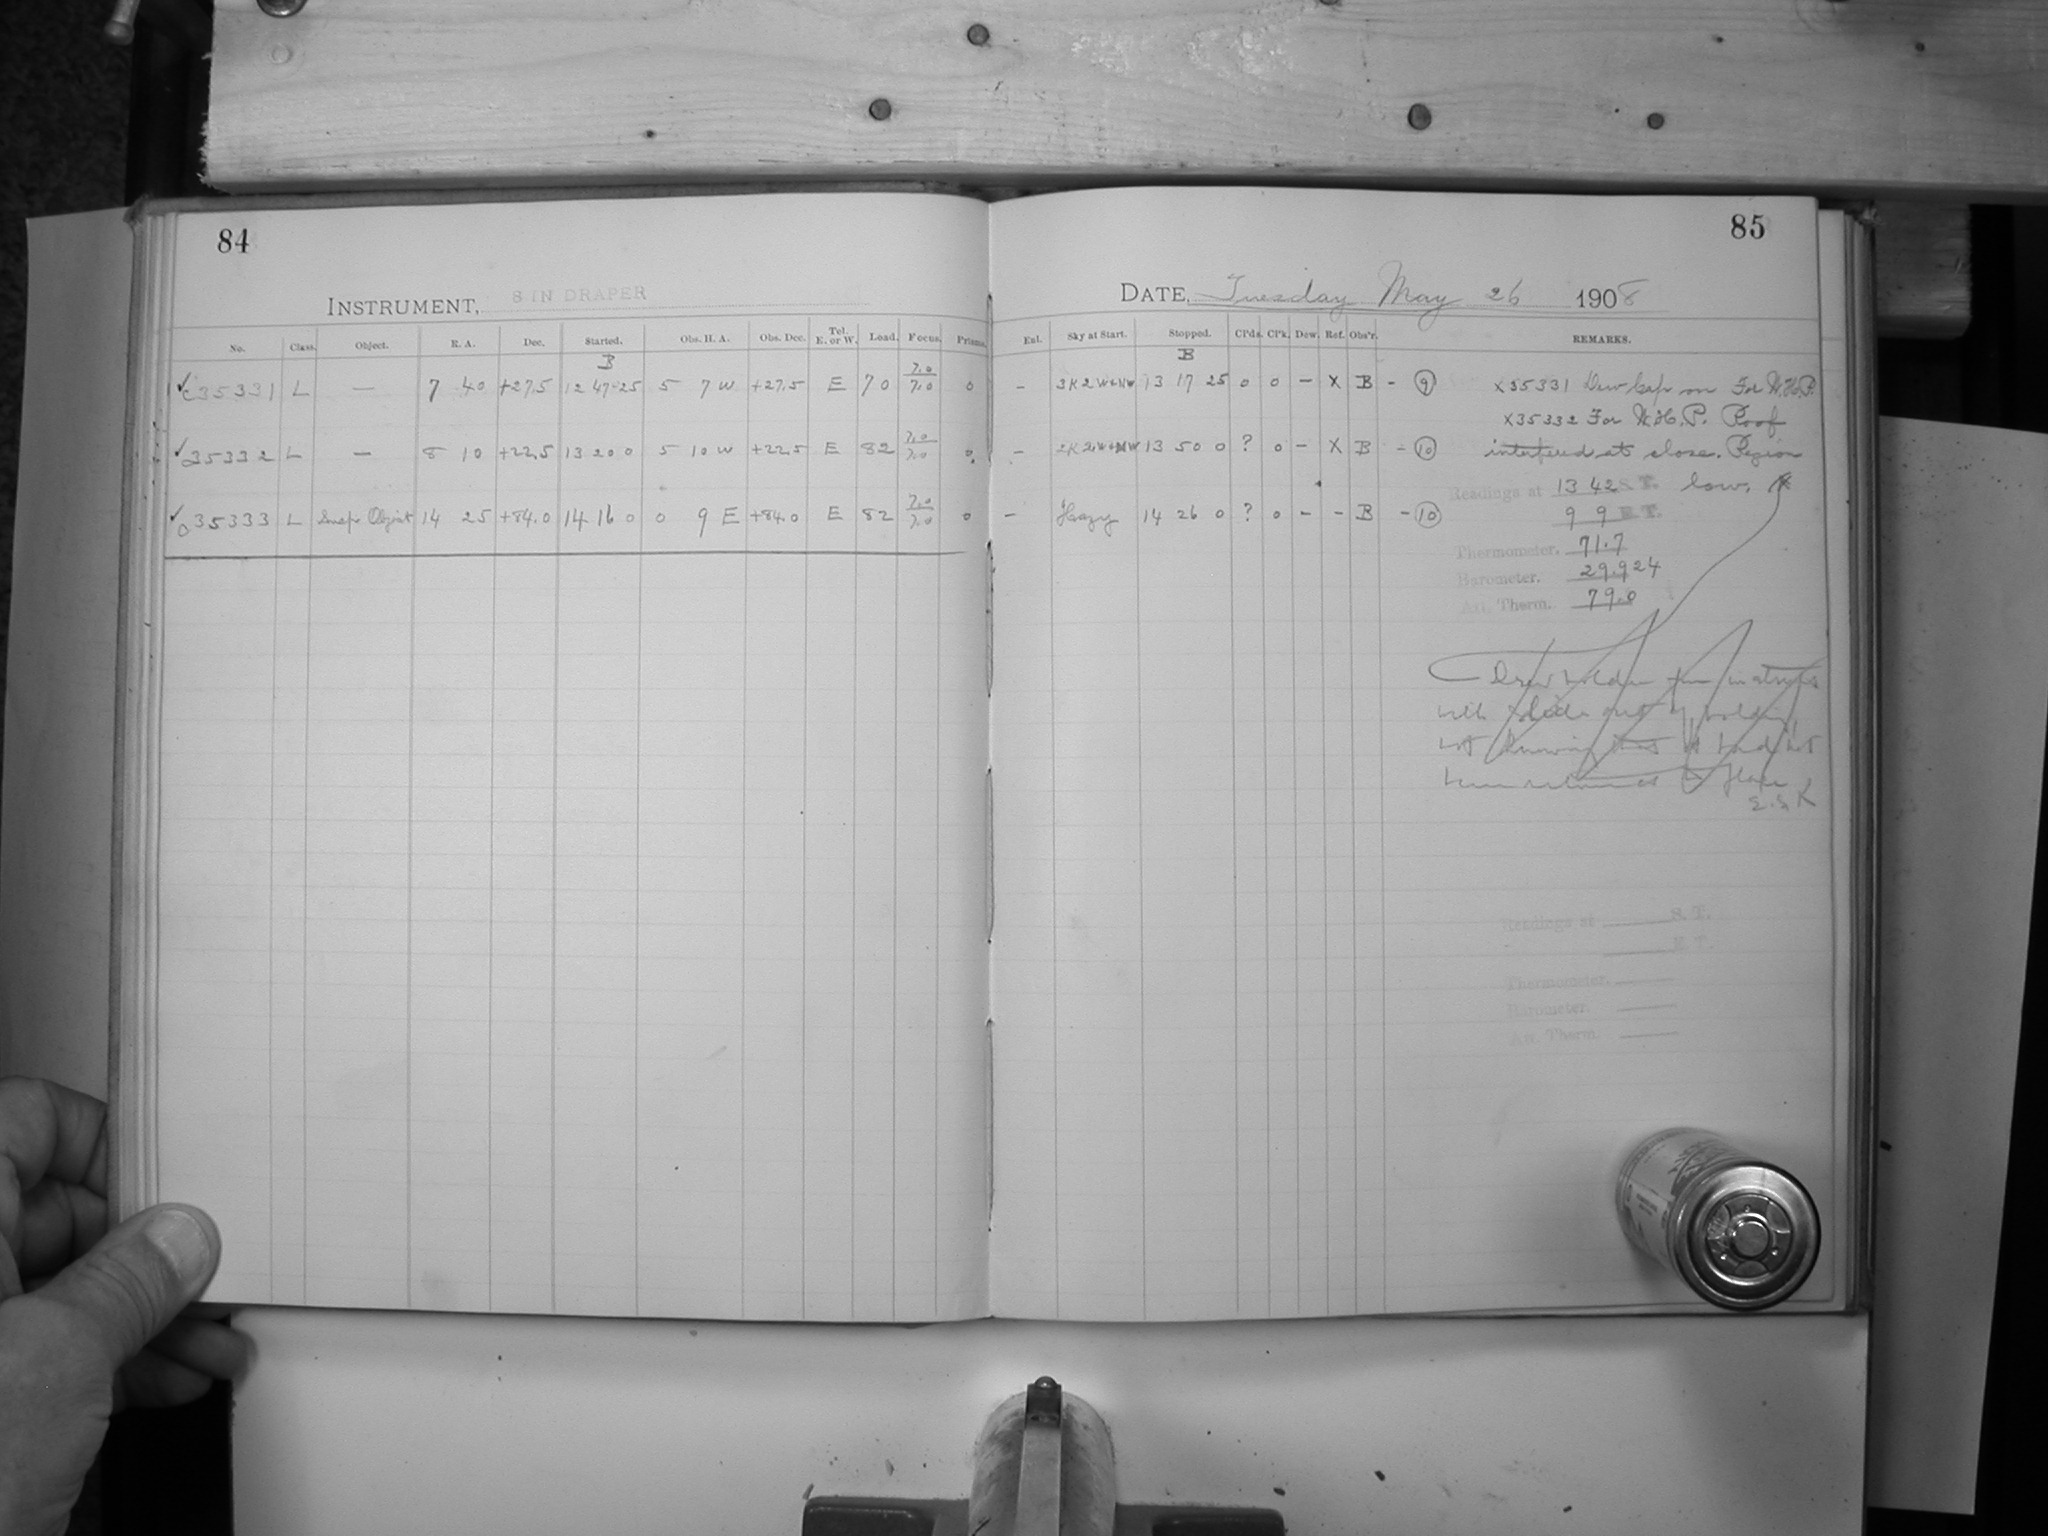 84
INSTRUMENT, 8 IN DRAPER
No. Class. Object. R. A. Dec. Started. Obs. H. A. Obs. Dec. Tel. E. or W. Load. Focus. Prisms.
B
35331 L — 7 40 +27.5 12 47 25 5 7 W +27.5 E 70 7.0 7.0 0
35332 L — 8 10 +22.5 13 20 0 5 10 W +22.5 E 82 7.0 7.0 0
35333 L Object 14 25 +84.0 14 16 0 0 9 E +84.0 E 82 7.0 7.0 0
85
DATE, Tuesday May 26 1908
Exl. Sky at Start. Stopped. Cl'ds. Cl'k. Dew. Ref. Obs'r. REMARKS.
B
— 2K2 W+NW 13 17 25 0 0 — X B - 9 x35331 Dew Cap on For W.H.P.
x35332 For W.H.P. Roof
— 2K2 W+NW 13 50 0 ? 0 — X B - 10 interfered at close. Region
Readings at 13 42 S. T. low.
— Hazy 14 26 0 ? 0 - - B - 10 9 9 E T.
Thermometer. 71.7
Barometer. 29.924
Att. Therm. 79.0
Drew holder from
with slide out of holder,
not knowing that it had not
been returned to
Readings at S. T.
E T.
Thermometer.
Barometer.
Att. Therm.